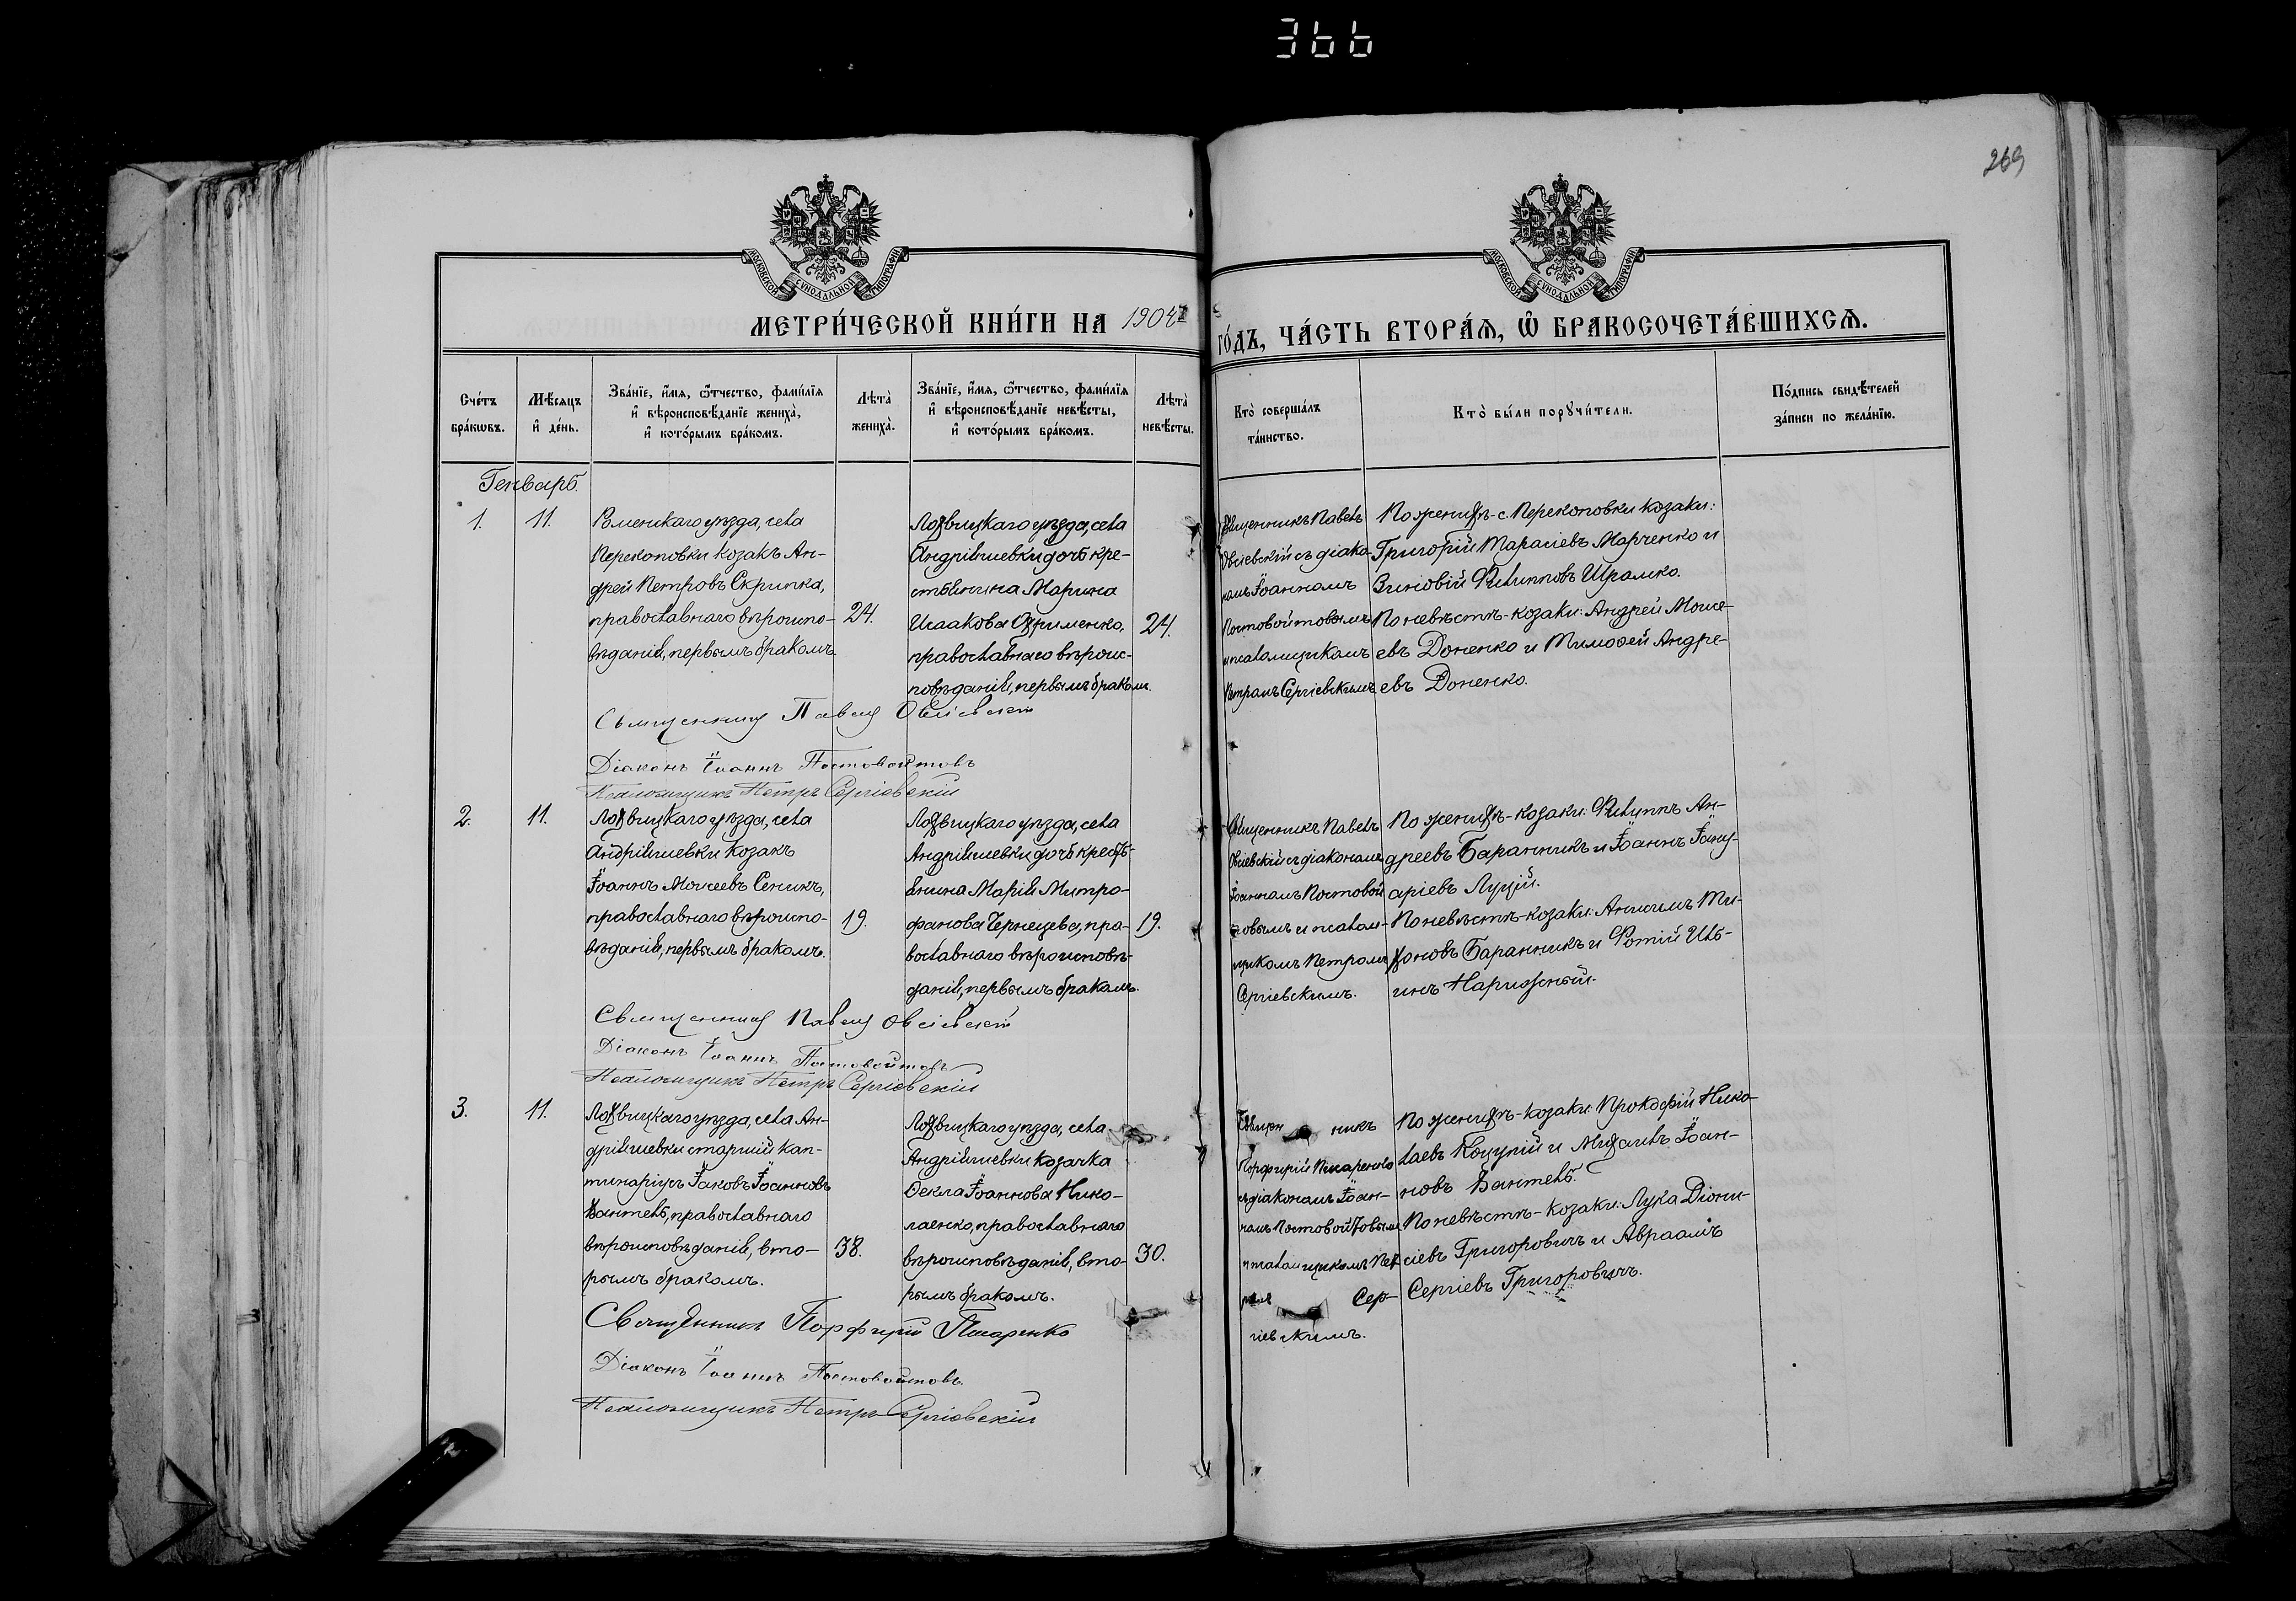 366
269
МОСКОВСКОЙ СУНОДАЛЬНОЙ ТИПОГРАФІИ
МОСКОВСКОЙ СУНОДАЛЬНОЙ ТИПОГРАФІИ
МЕТРИ́ЧЕСКОЙ КНИ́ГИ НА 1904й
ГО́ДЪ, ЧА́СТЬ ВТОРА́Ѧ, Ѡ҆ БРАКОСОЧЕТА́ВШИХСѦ.
Сче́тъ бра́кѡвъ.
Мѣ́сяцъ и҆ де́нь.
Зва́нїе, и҆́мѧ, ѻ҆́тчество, фами́лїѧ
и҆ вѣроисповѣ́данїе жениха̀,
и҆ кото́рымъ бра́комъ.
Лѣта̀ жениха̀.
Зва́нїе, и҆́мѧ, ѻ҆́тчество, фами́лїѧ
и҆ вѣроисповѣ́данїе невѣ́сты,
и҆ кото́рымъ бра́комъ.
Лѣта̀ невѣ́сты.
Кто̀ соверша́лъ
та́инство.
Кто̀ бы́ли порꙋчи́тели.
По́дпись свидѣ́телей
за́писи по жела́нїю.
Генварь.
1.
11.
Роменскаго уѣзда, села
Перекоповки козакъ Ан-
дрей Петровъ Скрипка,
православнаго вѣроиспо-
вѣданія, первымъ бракомъ.
24.
Лохвицкаго уѣзда, села
Андріяшевки дочь кре-
стьянина Марина
Исаакова Охрименко,
православнаго вѣроис-
повѣданія, первымъ бракомъ.
24.
Священникъ Павелъ
Овсіевскій съ діако-
номъ Іоанномъ
Постовойтовымъ
и псаломщикомъ
Петромъ Сергіевскимъ.
По женихѣ - с. Перекоповки козаки:
Григорій Тарасіевъ Марченко и
Зиновій Филипповъ Шрамко.
По невѣстѣ - козаки: Андрей Моисе-
евъ Доненко и Тимоѳей Андре-
евъ Доненко.
Священникъ Павелъ Овсіевскій
Діаконъ Іоаннъ Постовойтовъ
Псаломщикъ Петръ Сергіевскій
2.
11.
Лохвицкаго уѣзда, села
Андріяшевки козакъ
Іоаннъ Моисеевъ Сеникъ,
православнаго вѣроиспо-
вѣданія, первымъ бракомъ.
19.
Лохвицкаго уѣзда, села
Андріяшевки дочь кресть-
янина Марія Митро-
фанова Чернецева, пра-
вославнаго вѣроисповѣ-
данія, первымъ бракомъ.
19.
Священникъ Павелъ
Овсіевскій съ діакономъ
Іоанномъ Постовой-
товымъ и псалом-
щикомъ Петромъ
Сергіевскимъ.
По женихѣ - козаки: Филиппъ Ан-
дреевъ Баранникъ и Іоаннъ Іану-
аріевъ Луцій.
По невѣстѣ - козаки: Анисимъ Ти-
хоновъ Баранникъ и Фотій Иль-
инъ Нарижный.
Священникъ Павелъ Овсіевскій
Діаконъ Іоаннъ Постовойтовъ
Псаломщикъ Петръ Сергіевскій
3.
11.
Лохвицкаго уѣзда, села Ан-
дріяшевки старшій кап-
тинаріусъ Іаковъ Іоанновъ
Вантель, православнаго
вѣроисповѣданія, вто-
рымъ бракомъ.
38.
Лохвицкаго уѣзда, села
Андріяшевки козачка
Ѳекла Іоаннова Нико-
лаенко, православнаго
вѣроисповѣданія, вто-
рымъ бракомъ.
30.
Священникъ
Порфирій Писаренко
съ діакономъ Іоан-
номъ Постовойтовымъ
и псаломщикомъ Пет-
ромъ Сер-
гіевскимъ.
По женихѣ - козаки: Прокофій Нико-
лаевъ Коцупій и Михаилъ Іоан-
новъ Вантель.
По невѣстѣ - козаки: Лука Діони-
сіевъ Григоровичъ и Авраамъ
Сергіевъ Григоровичъ.
Священникъ Порфирій Писаренко
Діаконъ Іоаннъ Постовойтовъ.
Псаломщикъ Петръ Сергіевскій